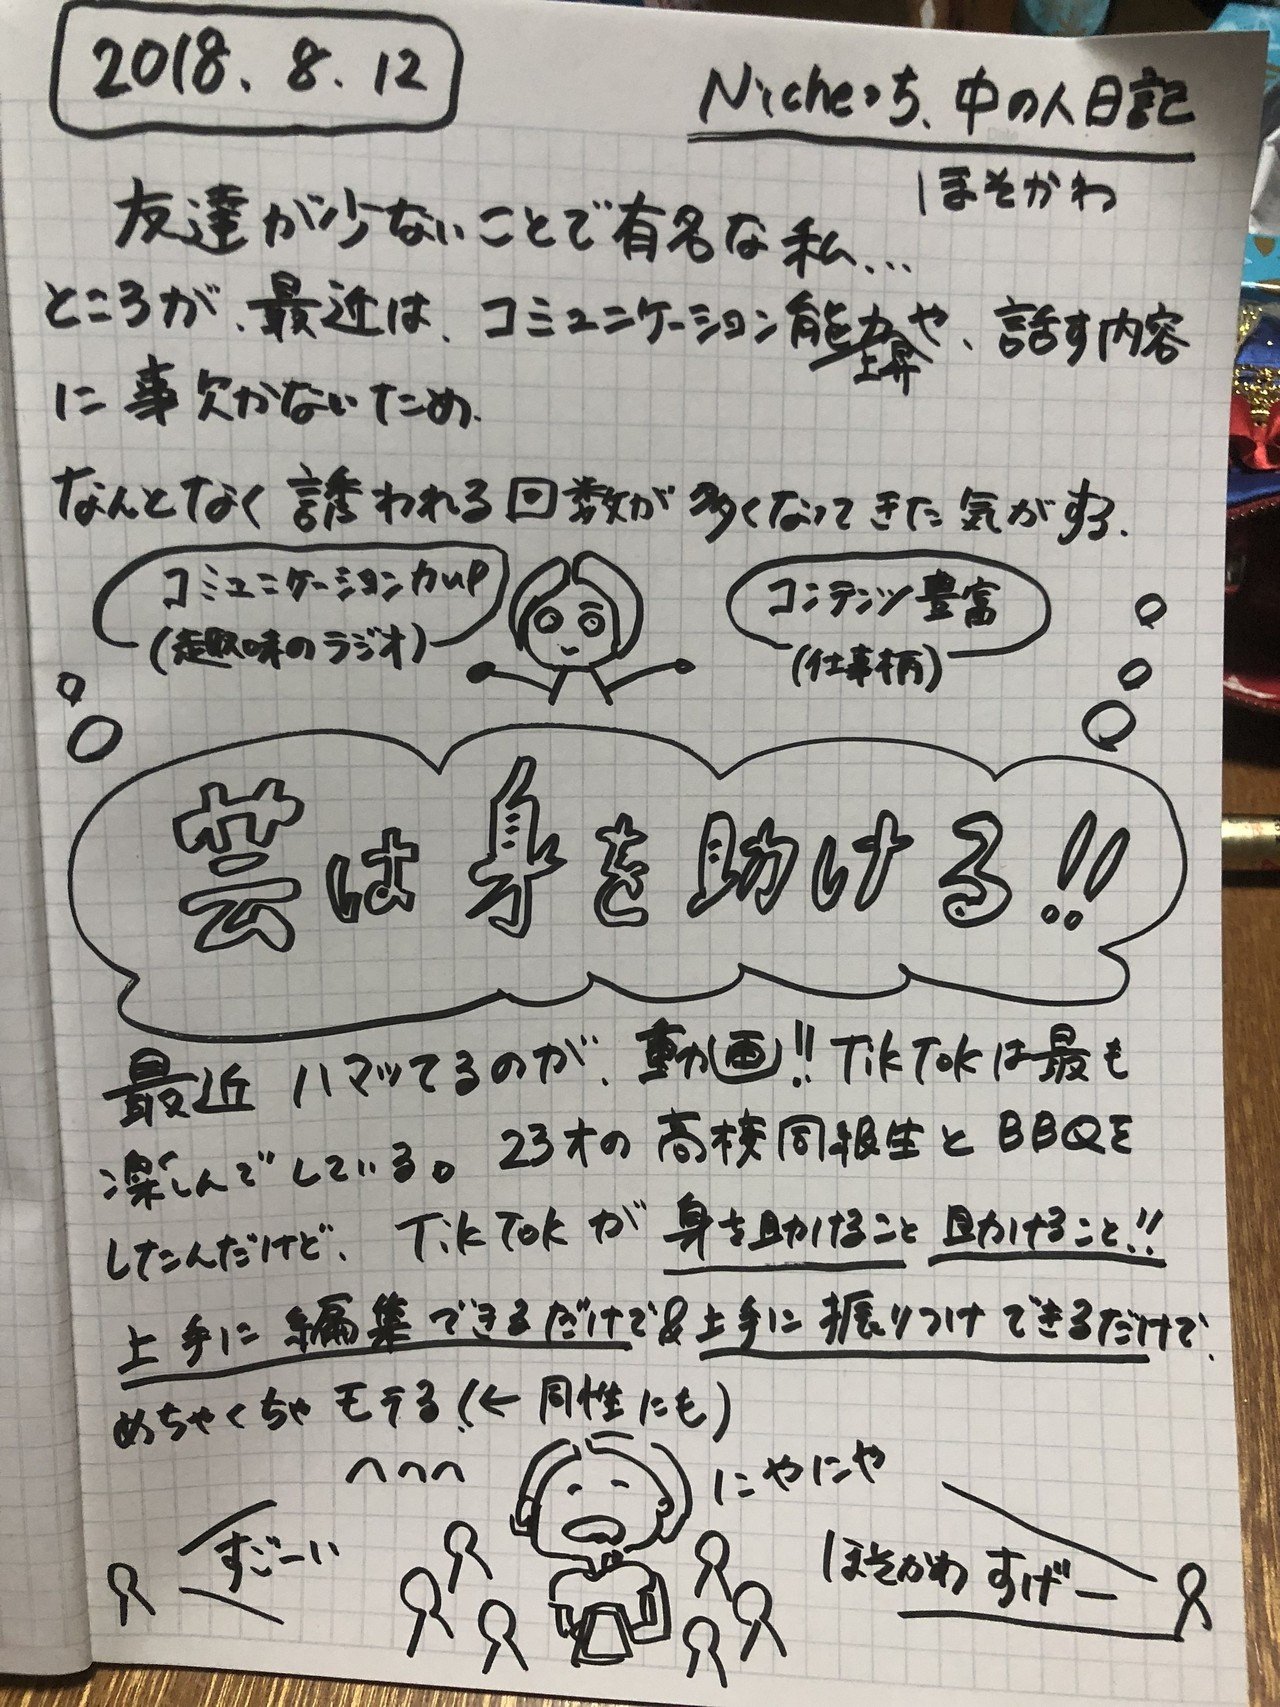 2018.8.12
Nicheっち、中の人日記
ほそかわ
友達が少ないことで有名な私…
ところが、最近は、コミュニケーション能力や、話す内容
上昇
に事欠かないため、
なんとなく誘われる回数が多くなってきた気がする.
コミュニケーション力up
(趣味のラジオ)
コンテンツ豊富
(仕事柄)
芸は身を助ける!!
最近ハマッてるのが、動画!! TikTokは最も
楽しんでしている。23才の高校同級生とBBQを
したんだけど、TikTokが身を助けること助けること!!
上手に編集できるだけで&上手に振りつけできるだけで、
めちゃくちゃモテる!(←同性にも)
へへへ
にやにや
すごーい
ほそかわすげー